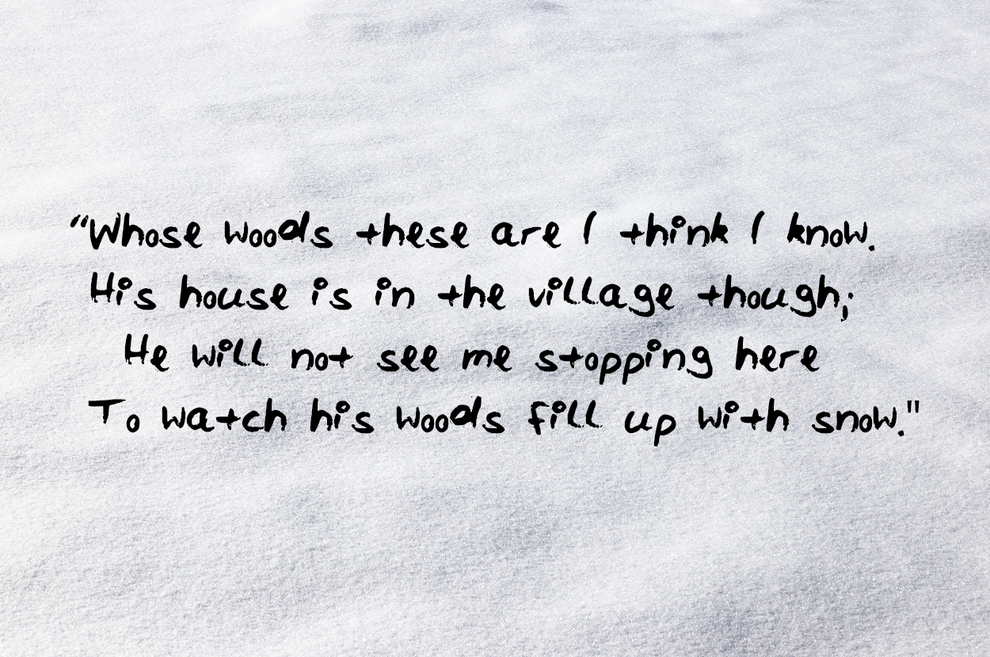 “Whose woods these are I think I know.
His house is in the village though;
He will not see me stopping here
To watch his woods fill up with snow."